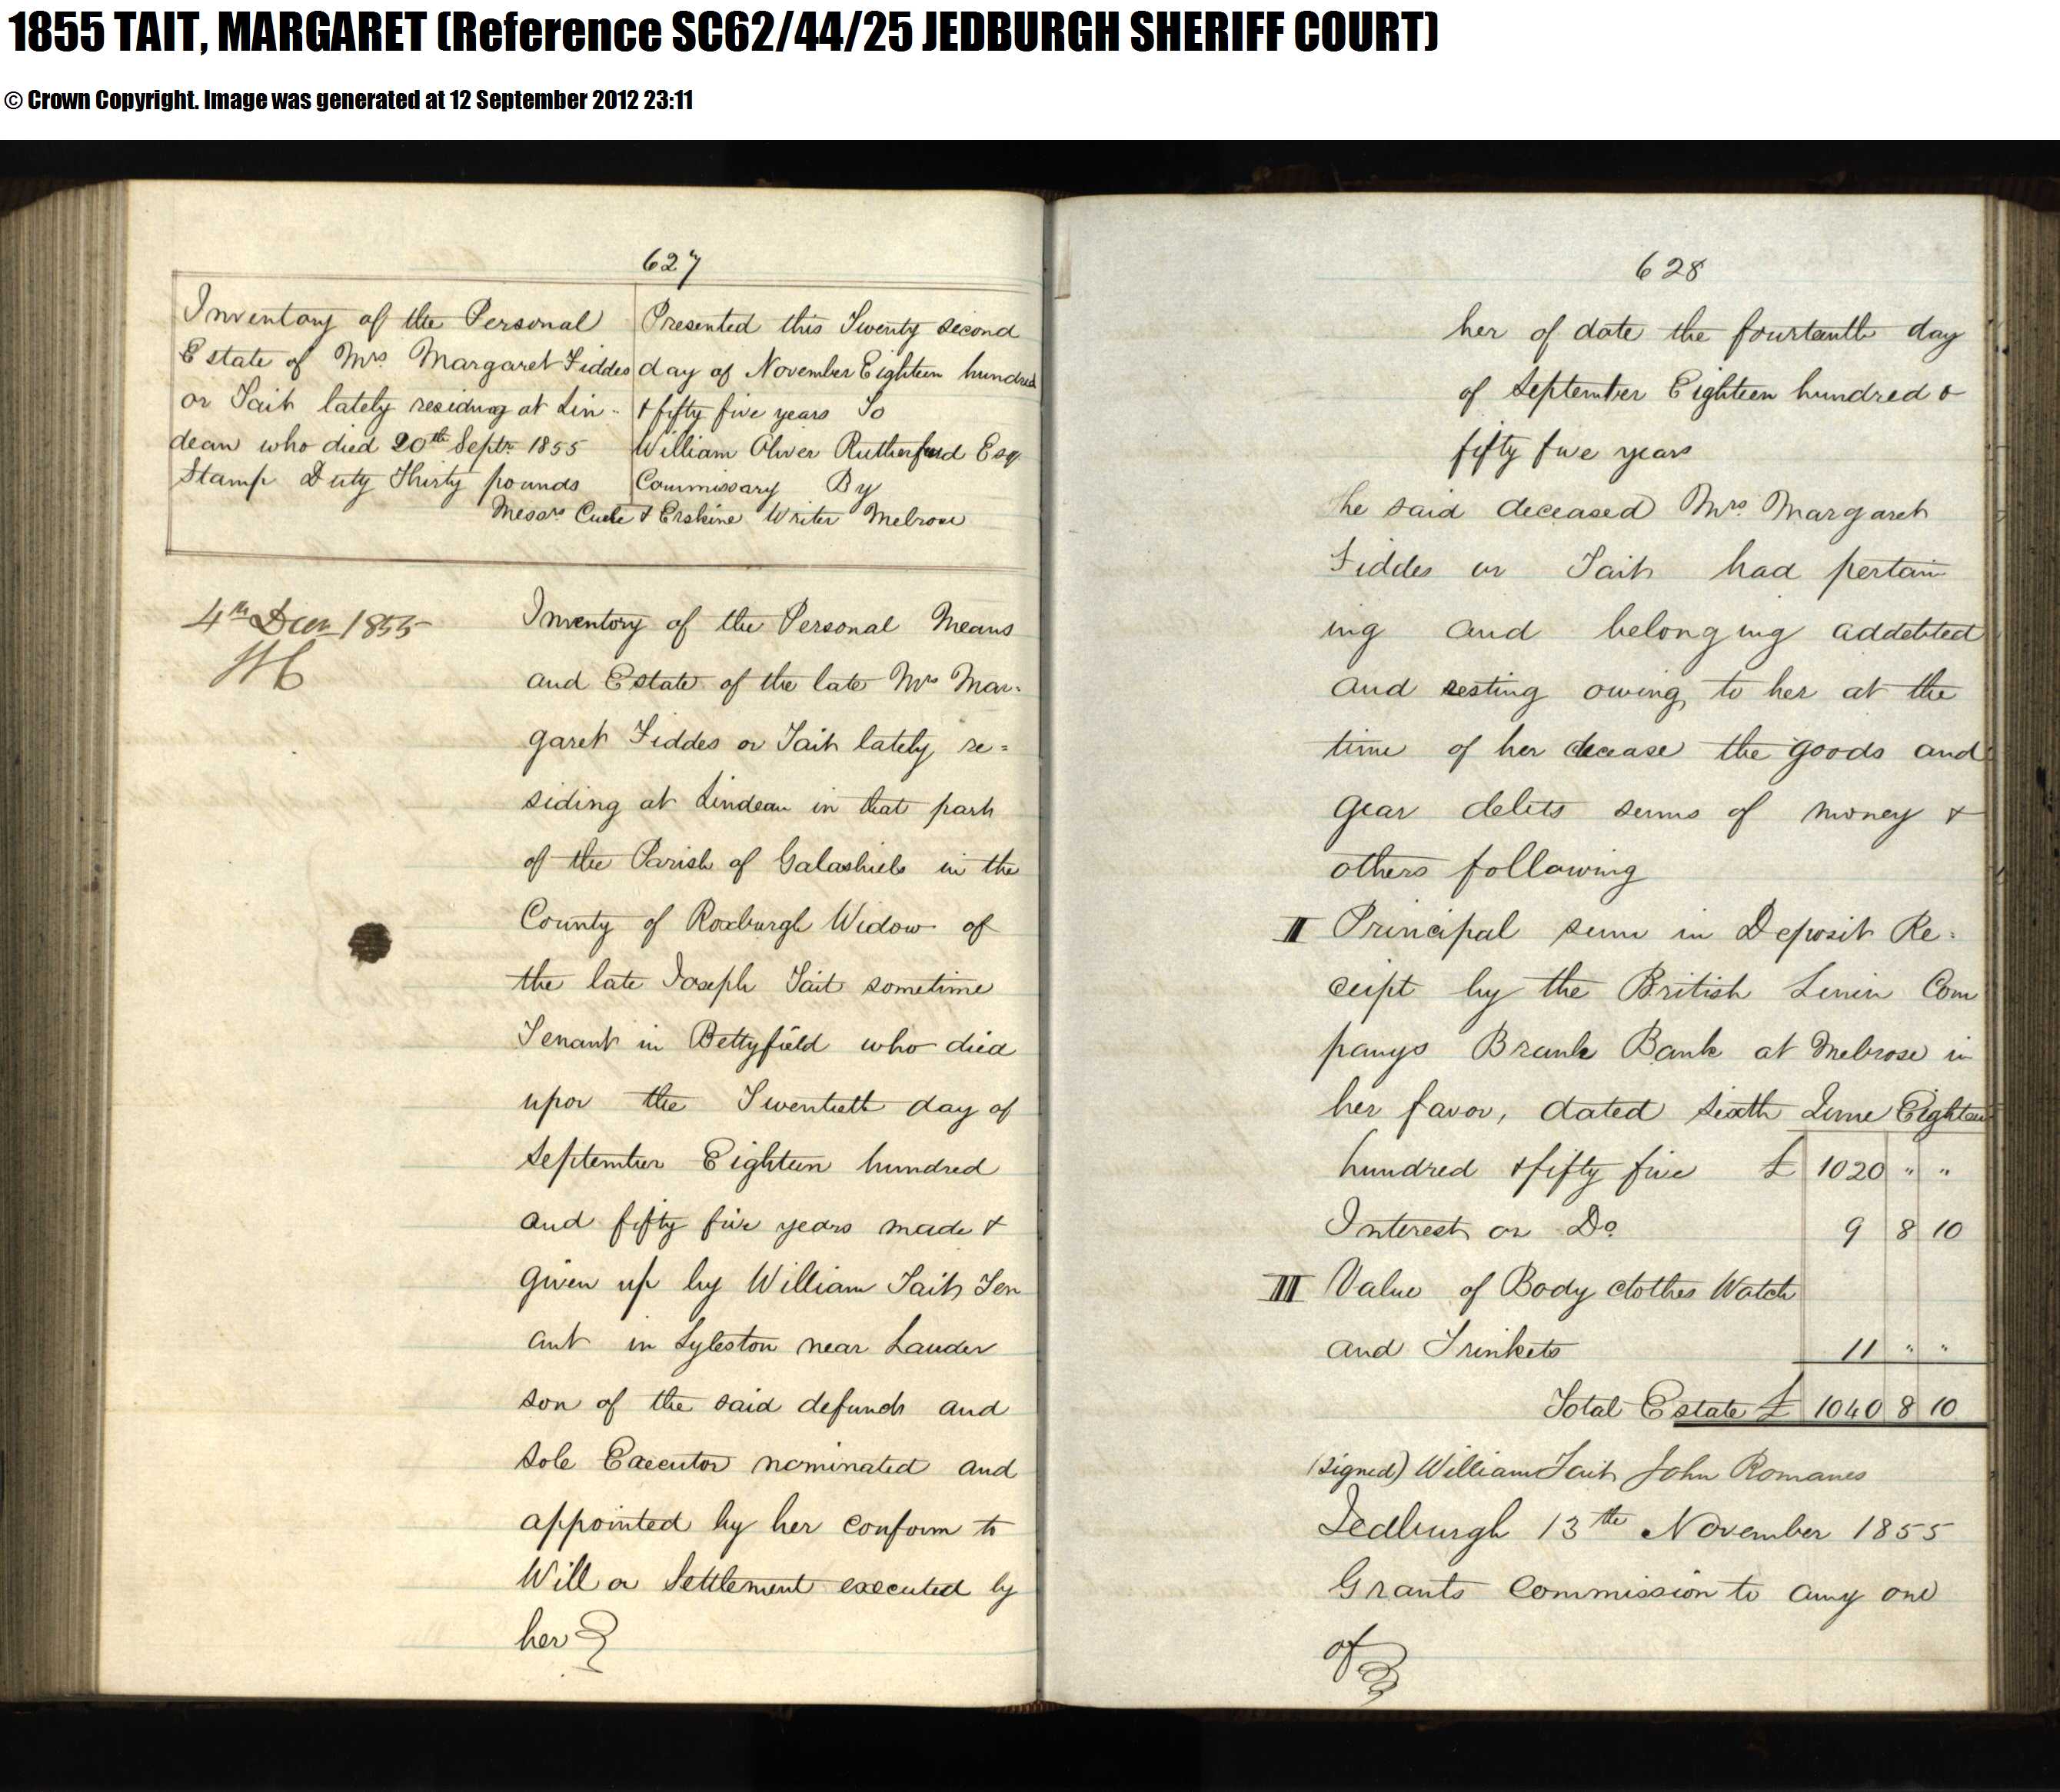 1855 TAIT, MARGARET (Reference SC62/44/25 JEDBURGH SHERIFF COURT)
© Crown Copyright. Image was generated at 12 September 2012 23:11
627
Inventory of the Personal
Estate of Mrs. Margaret Fiddes
or Tait lately residing at Lin-
dean who died 20th Septr. 1855
Stamp Duty Thirty pounds
Presented this Twenty second
day of November Eighteen hundred
& fifty five years To
William Oliver Rutherfurd Esq
Commissary By
Messrs & Erskine Writer Melrose
4th Decr 1855
Inventory of the Personal Means
and Estate of the late Mrs Mar:
garet Fiddes or Tait lately re=
siding at Lindean in that part
of the Parish of Galashiels in the
County of Roxburgh Widow of
the late Joseph Tait sometime
Tenant in Bettyfield who died
upon the Twentieth day of
September Eighteen hundred
and fifty five years made &
given up by William Tait Ten
ant in Lyleston near Lauder
son of the said defunct and
sole Executor nominated and
appointed by her conform to
Will or Settlement executed by
her
628
her of date the fourteenth day
of September Eighteen hundred &
fifty five years
he said deceased Mrs Margaret
Fiddes or Tait had pertain
ing and belonging addebted
and resting owing to her at the
time of her decease the goods and
gear debts sums of money &
others following
II Principal sum in Deposit Re:
ceipt by the British Linin Com
panys Brank Bank at Melrose in
her favor, dated sixth June Eighteen
hundred & fifty five £ 1020 " "
Interest on Do. 9 8 10
III Value of Body clothes Watch
and Trinkets 11 " "
Total Estate £ 1040 8 10
(signed) William Tait John Romanes
Jedburgh 13th November 1855
Grants Commission to any one
of